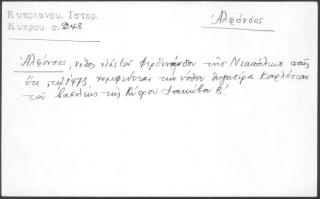 Κυπριανου. Ιστορ.
Κυπρου σ. 248
Ἀλφόνσος
Ἀλφόνσος, νόθος υἱὸς τοῦ Φερδινάνδου τῆς Νεαπόλεως
ὅτε τῷ 1473 τὴν νόθον θυγατέρα Καρλότταν
τοῦ βασιλέως τῆς Κύπρου Ἰακώβου Β!